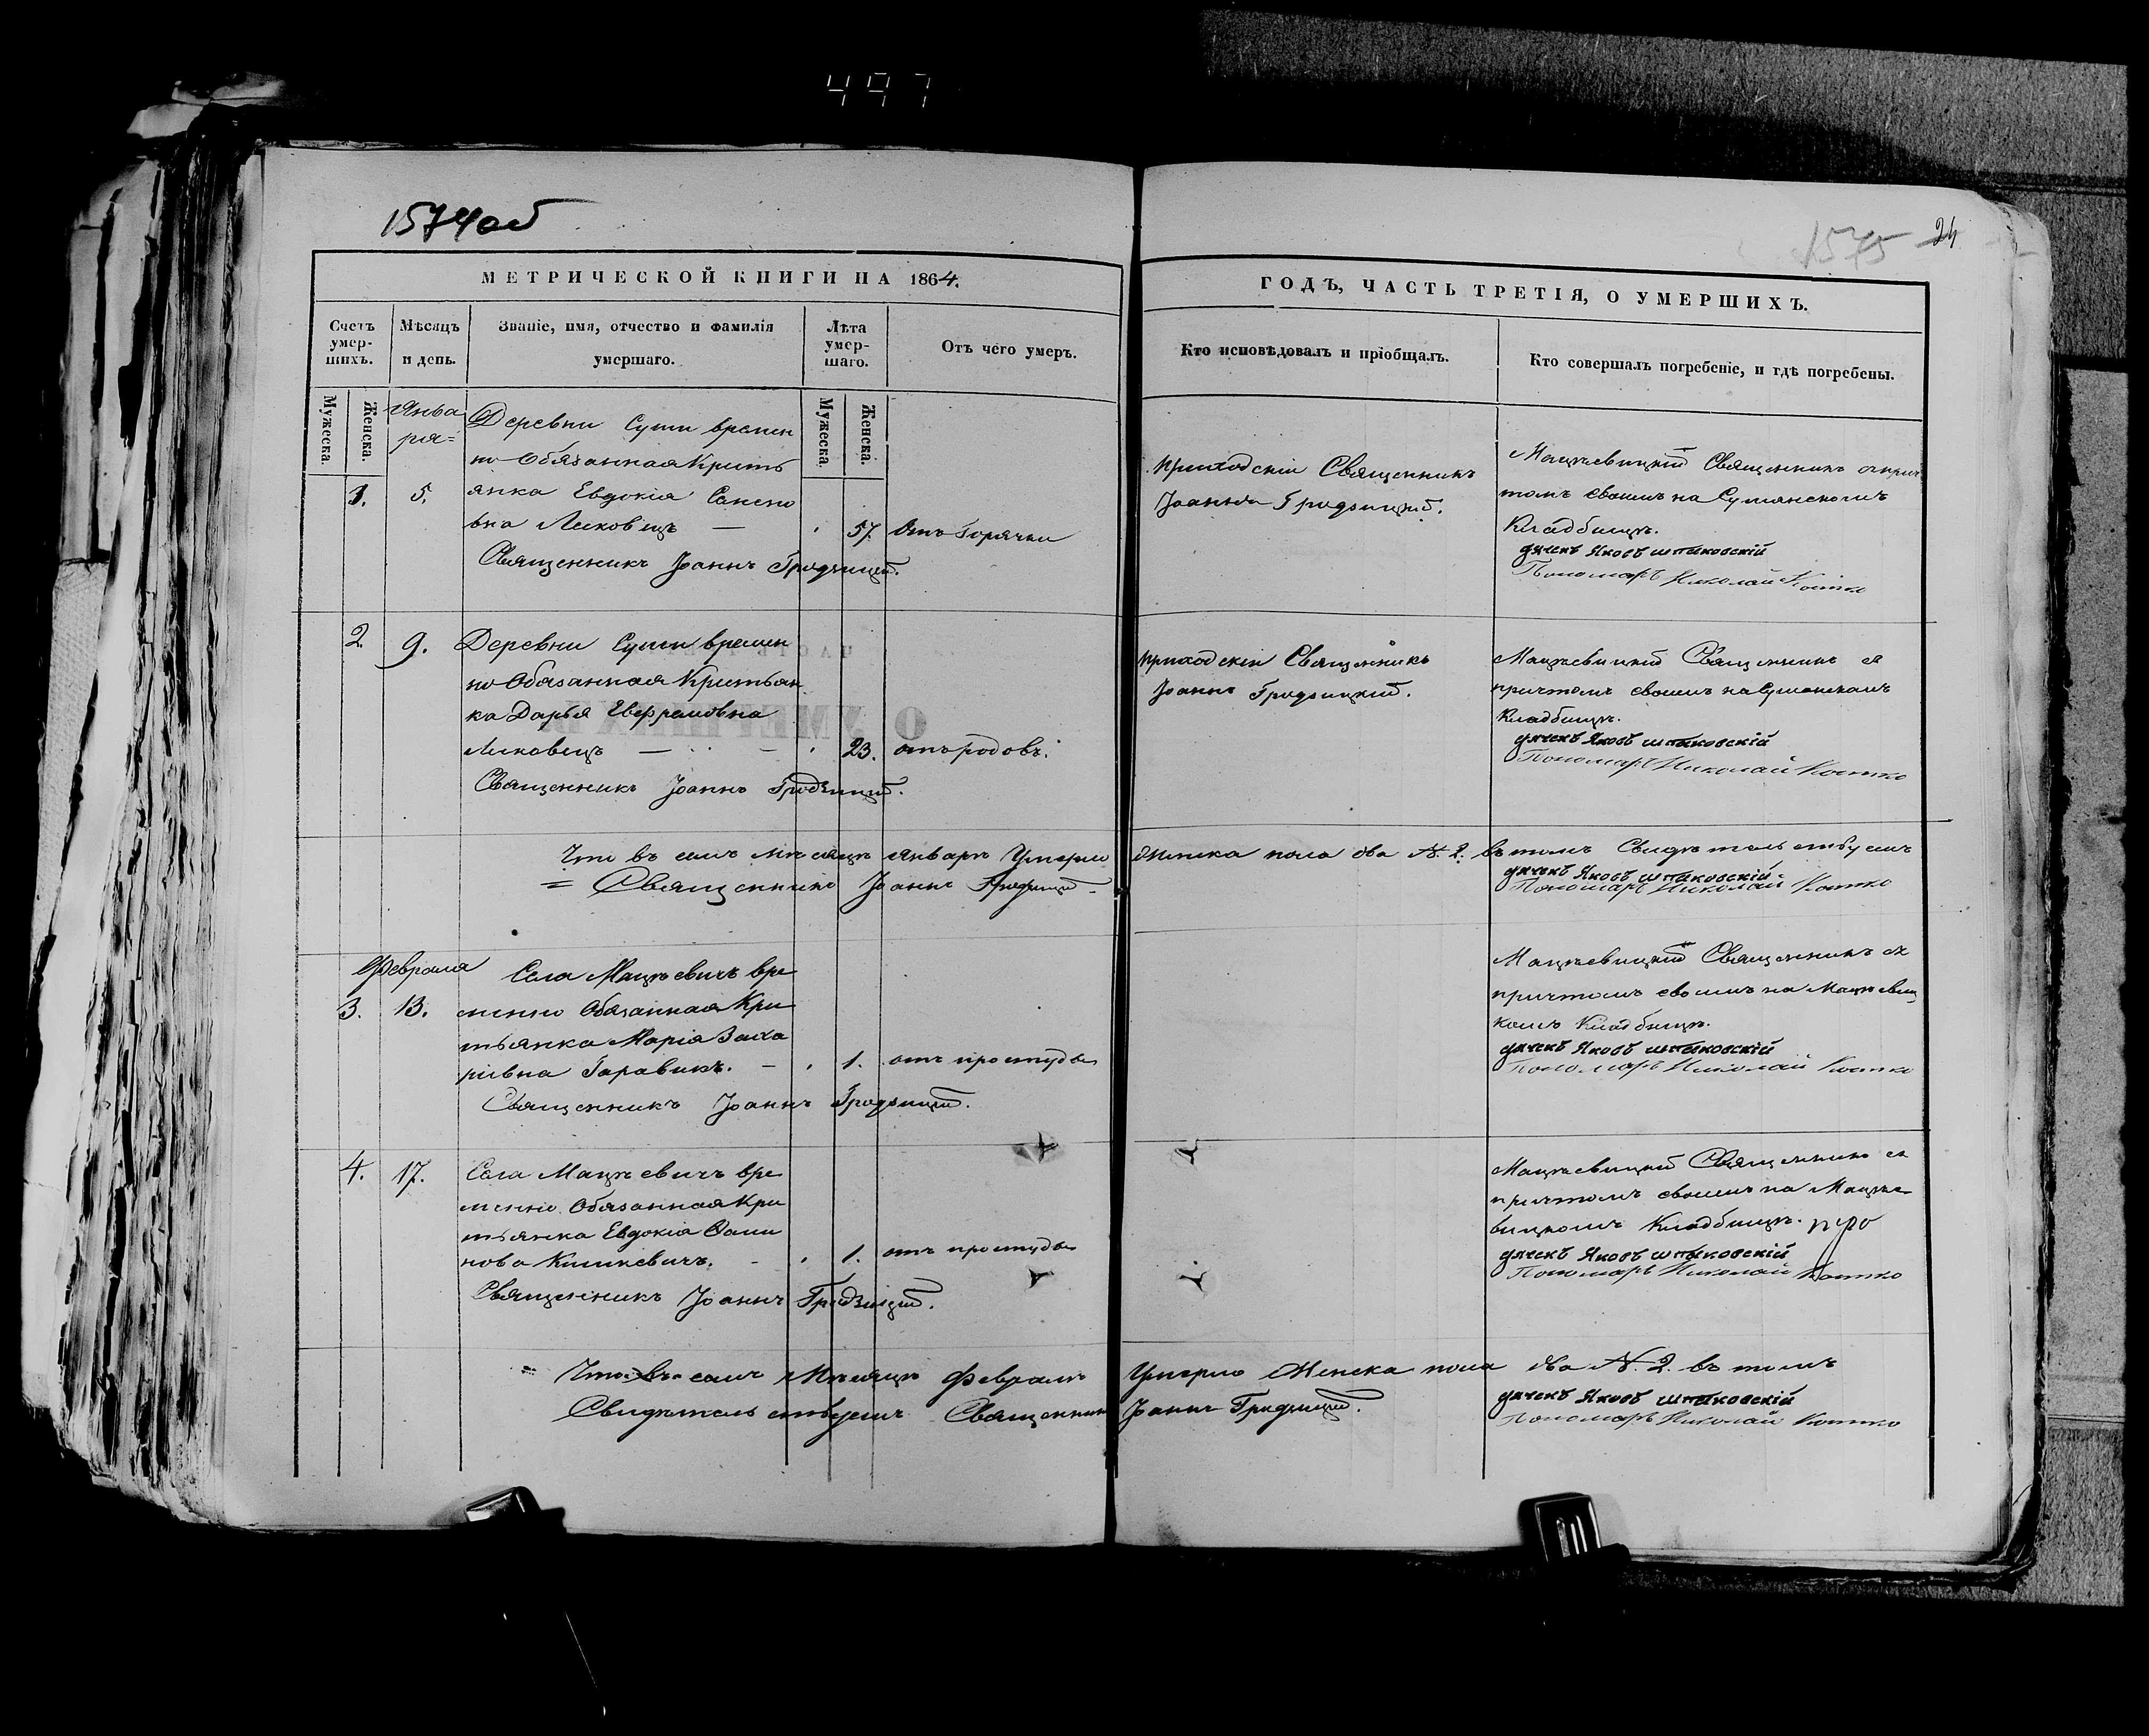 497
1574об
1575 24
МЕТРИЧЕСКОЙ КНИГИ НА 1864.
ГОДЪ, ЧАСТЬ ТРЕТІЯ, О УМЕРШИХЪ.
Счетъ умер-шихъ.
Мѣсяцъ и день.
Званіе, имя, отчество и фамилія умершаго.
Лѣта умер-шаго.
Отъ чего умеръ.
Кто исповѣдовалъ и пріобщалъ.
Кто совершалъ погребеніе, и гдѣ погребены.
Мужеска.
Женска.
Мужеска.
Женска.
Янва
ря=
Деревни Суши времен
но Обязанная Кресть
1. 5. янка Евдокія
вна Лисковецъ — 57. Отъ Горячки
Священникъ Іоаннъ Гродзицкій.
приходскій Священникъ
Іоаннъ Гродзицкій.
Мацѣевицкій Священникъ
томъ своимъ на
Кладбищѣ.
дячекъ Яковъ Шпаковскій
Пономарь Николай Костко
2. 9. Деревни Суши времен
но Обязанная Крестьян
ка Дарья Евфремовна
Лисковецъ — 23. отъ родовъ.
Священникъ Іоаннъ Гродзицкій.
приходскій Священникъ
Іоаннъ Гродзицкій.
Мацѣевицкій Священникъ съ
причтомъ своимъ на Сушанскомъ
Кладбищѣ.
дячекъ Яковъ Шпаковскій
Пономарь Николай Костко
Что въ семъ мѣсяцѣ Январѣ Умерло Женска пола два №. 2. въ томъ Свидѣтельствуемъ
= Священникъ Іоаннъ Гродзицкій
дячекъ Яковъ Шпаковскій
Пономарь Николай Костко
Февраля Села Мацѣевичъ вре
3. 13. менно Обязанная Кре
стьянка Марія Заха
ріевна Горавикъ. — 1. отъ простуды
Священникъ Іоаннъ Гродзицкій.
Мацѣевицкій Священникъ съ
причтомъ своимъ на Мацѣевиц
комъ Кладбищѣ.
дячекъ Яковъ Шпаковскій
Пономарь Николай Костко
4. 17. Села Мацѣевичъ вре
менно Обязанная Кре
стьянка Евдокія
нова Климкевичъ. 1. отъ простуды
Священникъ Іоаннъ Гродзицкій.
Мацѣевицкій Священникъ съ
причтомъ своимъ на Мацѣе
вицкомъ Кладбищѣ.
дячекъ Яковъ Шпаковскій
Пономарь Николай Костко
= Что въ семъ Мѣсяцѣ Февралѣ Умерло Женска пола два №. 2. въ томъ
Свидѣтельствуемъ Священникъ Іоаннъ Гродзицкій.
дячекъ Яковъ Шпаковскій
Пономарь Николай Костко